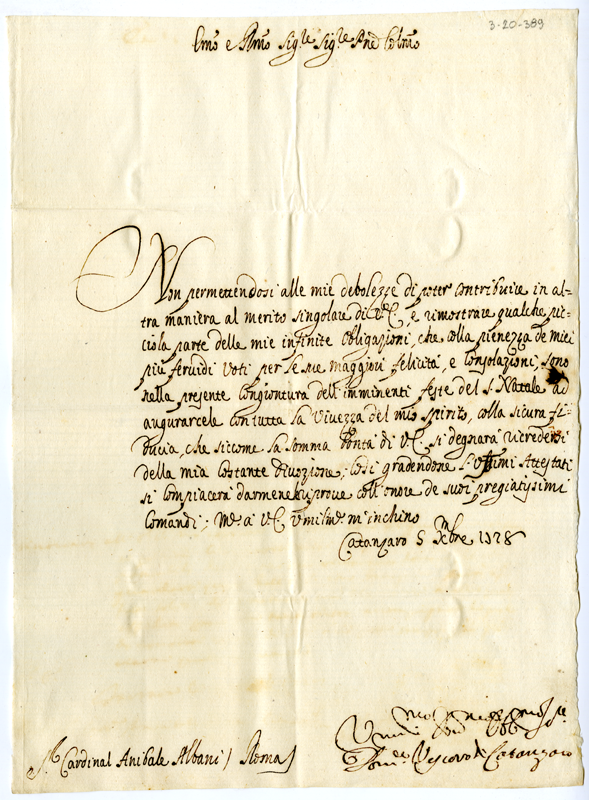 3-20-389
Emo e Rmo Sigre Sigre Pne Colmo
Non permettendosi alle mie debolezze di poter contribuire in al=
tra maniera al merito singolare di V.E., e rimostrare qualche pic=
ciola parte delle mie infinite obligazioni, che colla pienezza de miei
più fervidi voti per le sue maggiori felicità, e consolazioni, sono
nella presente congiontura dell'imminenti feste del S. Natale ad
augurarcele con tutta la vivezza del mio spirito, colla sicura fi=
ducia, che siccome la somma bontà di V.E. si degnarà
della mia costante divozione; così gradendone l'ultimi attestati
si compiacerà darmene le riprove coll'onore de suoi pregiatissimi
comandi; Me a V.E. umilme m'inchino
Catanzaro 5 Xmbre 1728
Sr. Cardinal Anibale Albani / Roma
Domco Vescovo di Catanzaro